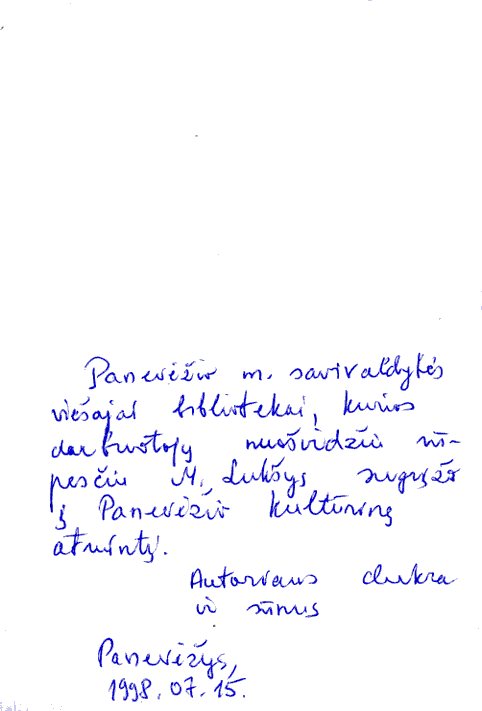 Panevėžio m. savivaldybės
viešajai bibliotekai, kurios
darbuotojų nuoširdžiu rū-
pesčiu M. Lukšys sugrįžo
į Panevėžio kultūrinę
atmintį.
Autoriaus dukra
ir sūnus
Panevėžys,
1998.07.15.